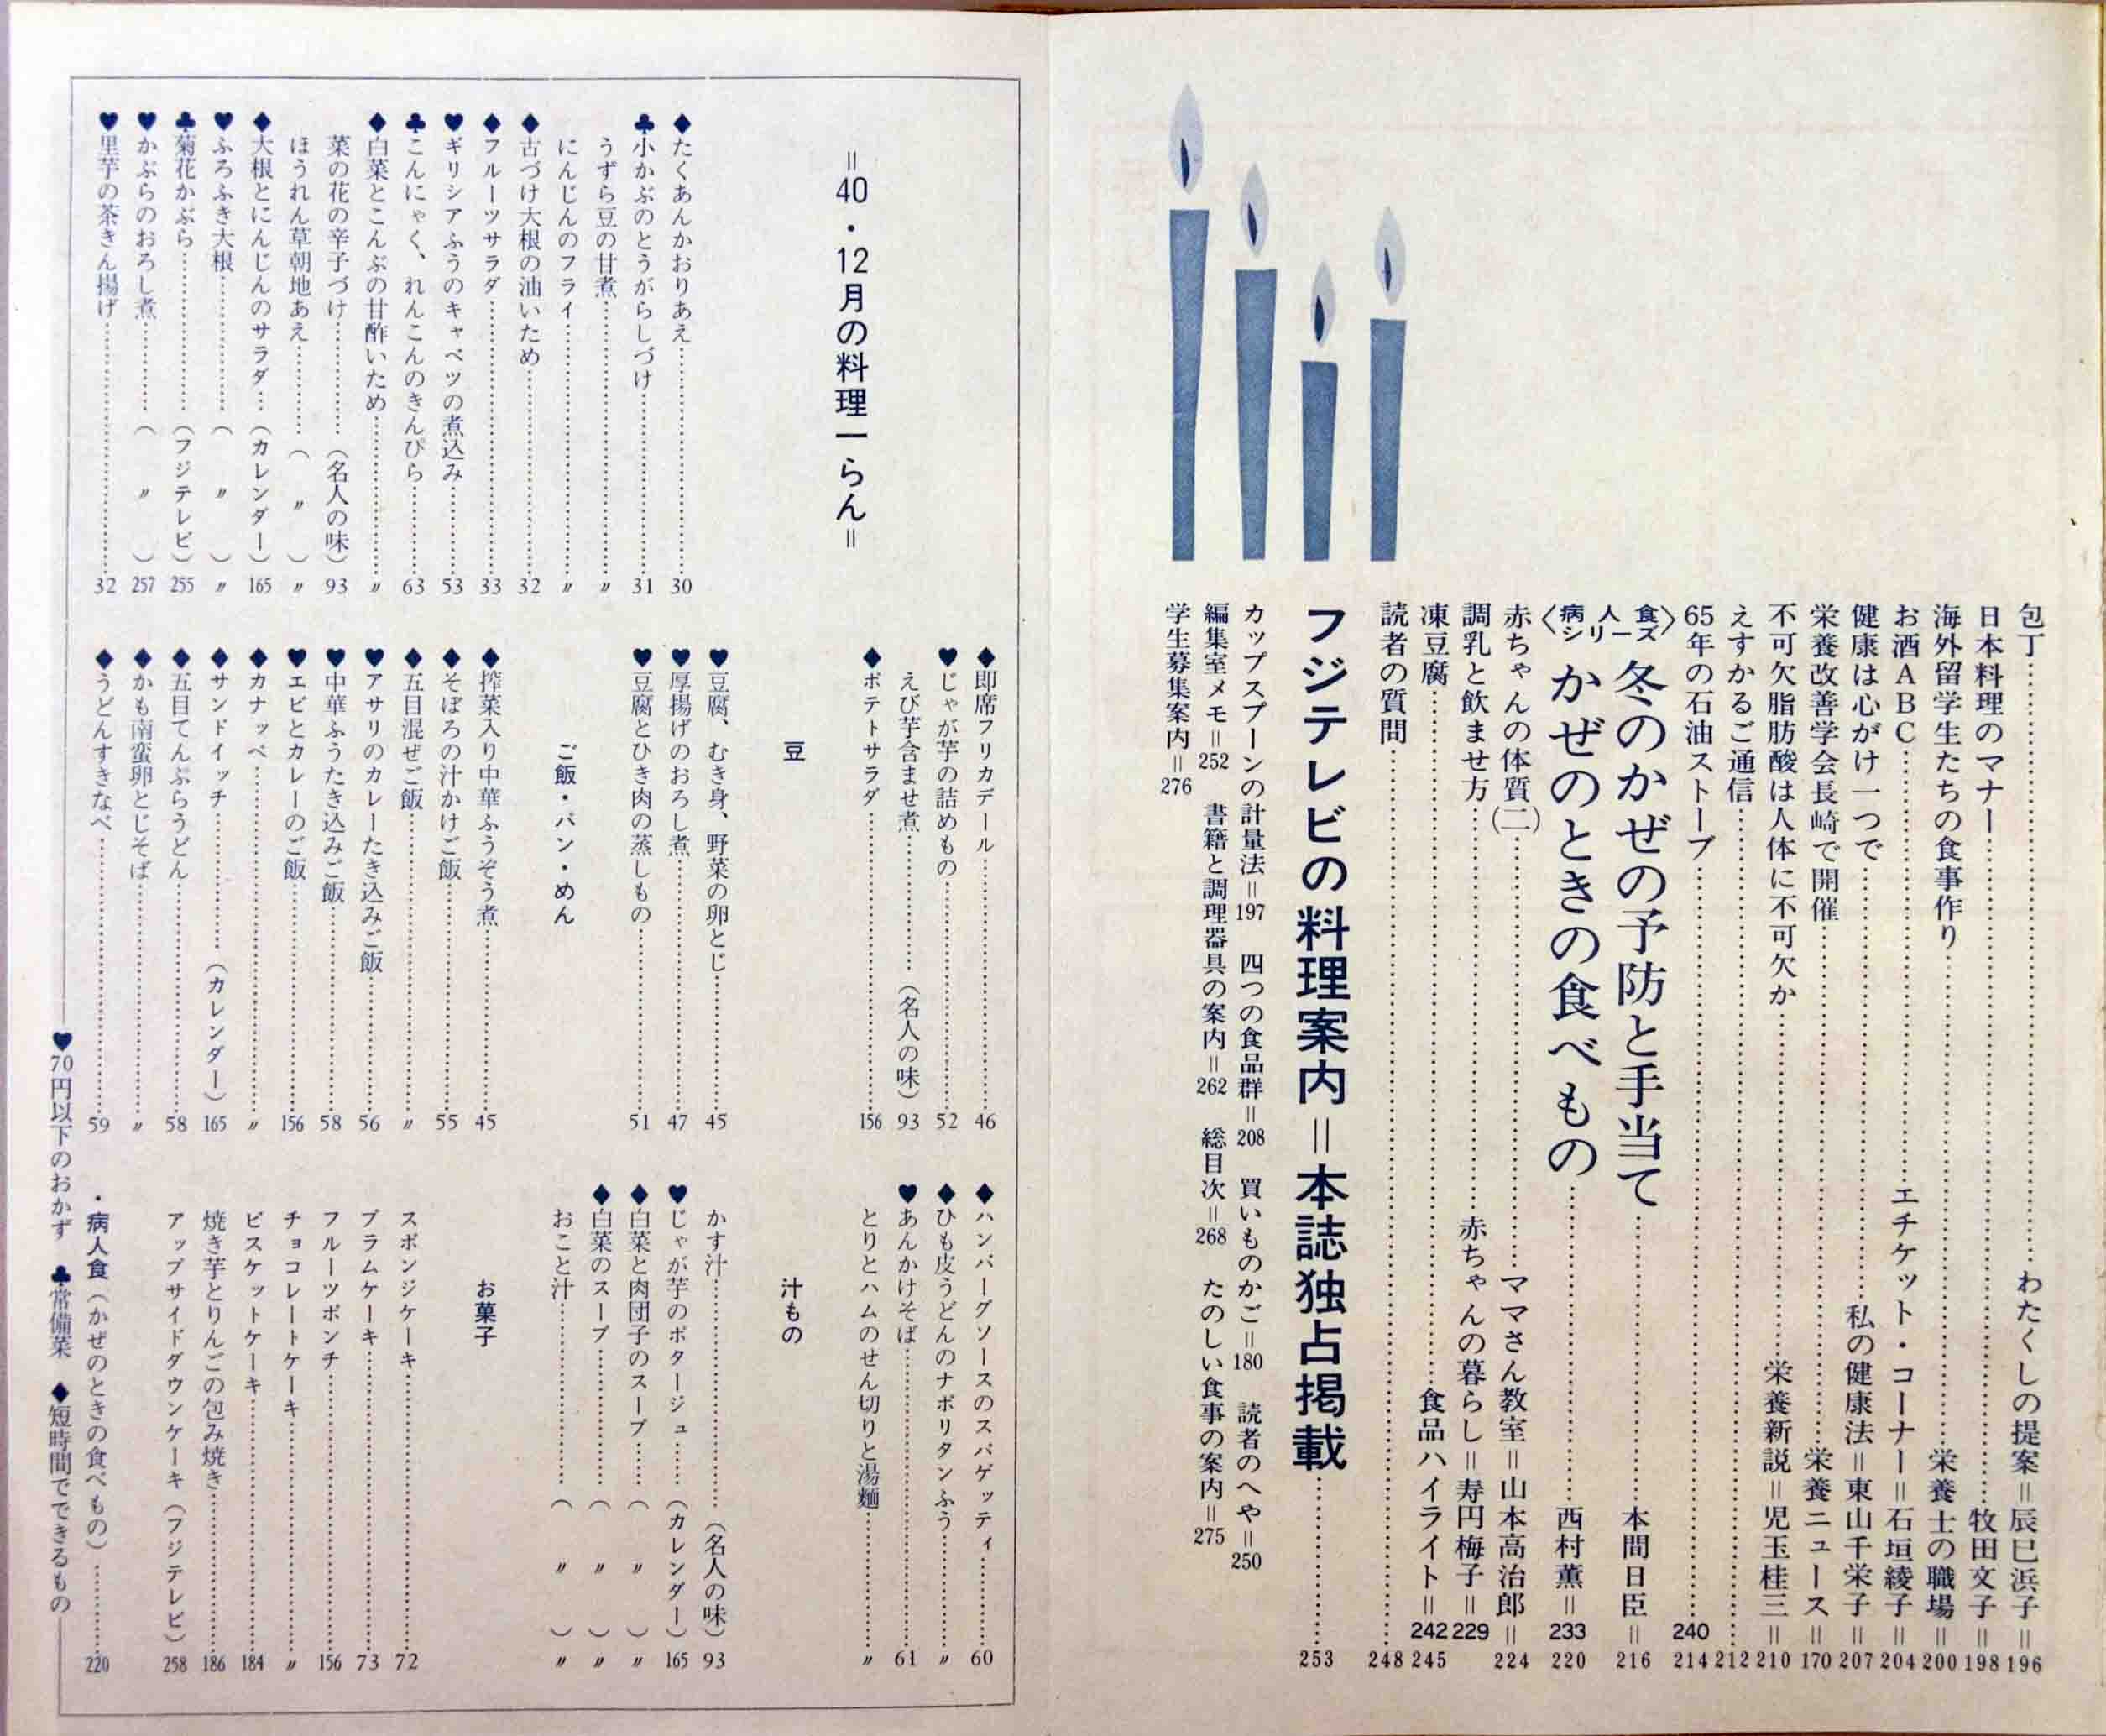 包丁……わたくしの提案＝辰巳浜子＝196
日本料理のマナー……牧田文子＝198
海外留学生たちの食事作り……栄養士の職場＝200
お酒ABC……エチケット・コーナー＝石垣綾子＝204
健康は心がけ一つで……私の健康法＝東山千栄子＝207
栄養改善学会長崎で開催……栄養ニュース＝170
不可欠脂肪酸は人体に不可欠か……栄養新説＝児玉桂三＝210
えすかるご通信……212
65年の石油ストーブ……240 214
〈病人食シリーズ〉
冬のかぜの予防と手当て……本間日臣＝216
かぜのときの食べもの……西村薫＝233 220
赤ちゃんの体質(二)……ママさん教室＝山本高治郎＝224
調乳と飲ませ方……赤ちゃんの暮らし＝寿円梅子＝229
凍豆腐……食品ハイライト＝242 245
読者の質問……248
フジテレビの料理案内＝本誌独占掲載……253
カップスプーンの計量法＝197 四つの食品群＝208 買いものかご＝180 読者のへや＝250
編集室メモ＝252 書籍と調理器具の案内＝262 総目次＝268 たのしい食事の案内＝275
学生募集案内＝276
＝40・12月の料理一らん＝
◆たくあんかおりあえ……30
♣小かぶのとうがらしづけ……31
うずら豆の甘煮……〃
にんじんのフライ……〃
◆古づけ大根の油いため……32
◆フルーツサラダ……33
♥ギリシアふうのキャベツの煮込み……53
♣こんにゃく、れんこんのきんぴら……63
◆白菜とこんぶの甘酢いため……〃
菜の花の辛子づけ……（名人の味）93
ほうれん草朝地あえ……（〃）〃
◆大根とにんじんのサラダ…（カレンダー）165
♥ふろふき大根……（〃）〃
♣菊花かぶら……（フジテレビ）255
♥かぶらのおろし煮……（〃）257
♥里芋の茶きん揚げ……32
◆即席フリカデール……46
♥じゃが芋の詰めもの……52
えび芋含ませ煮……（名人の味）93
◆ポテトサラダ……156
豆
♥豆腐、むき身、野菜の卵とじ……45
♥厚揚げのおろし煮……47
♥豆腐とひき肉の蒸しもの……51
ご飯・パン・めん
◆搾菜入り中華ふうぞう煮……45
◆そぼろの汁かけご飯……55
◆五目混ぜご飯……〃
♥アサリのカレーたき込みご飯……56
♥中華ふうたき込みご飯……58
♥エビとカレーのご飯……156
◆カナッペ……〃
◆サンドイッチ……（カレンダー）165
◆五目てんぷらうどん……58
◆かも南蛮卵とじそば……〃
◆うどんすきなべ……59
◆ハンバーグソースのスパゲッティ……60
◆ひも皮うどんのナポリタンふう……〃
♥あんかけそば……61
とりとハムのせん切りと湯麵……〃
汁もの
かす汁……（名人の味）93
♥じゃが芋のポタージュ……（カレンダー）165
◆白菜と肉団子のスープ……（〃）〃
◆白菜のスープ……（〃）〃
おこと汁……（〃）〃
お菓子
スポンジケーキ……72
プラムケーキ……73
フルーツポンチ……156
チョコレートケーキ……〃
ビスケットケーキ……184
焼き芋とりんごの包み焼き……186
アップサイドダウンケーキ（フジテレビ）258
・病人食（かぜのときの食べもの）……220
♥70円以下のおかず ♣常備菜 ◆短時間でできるもの